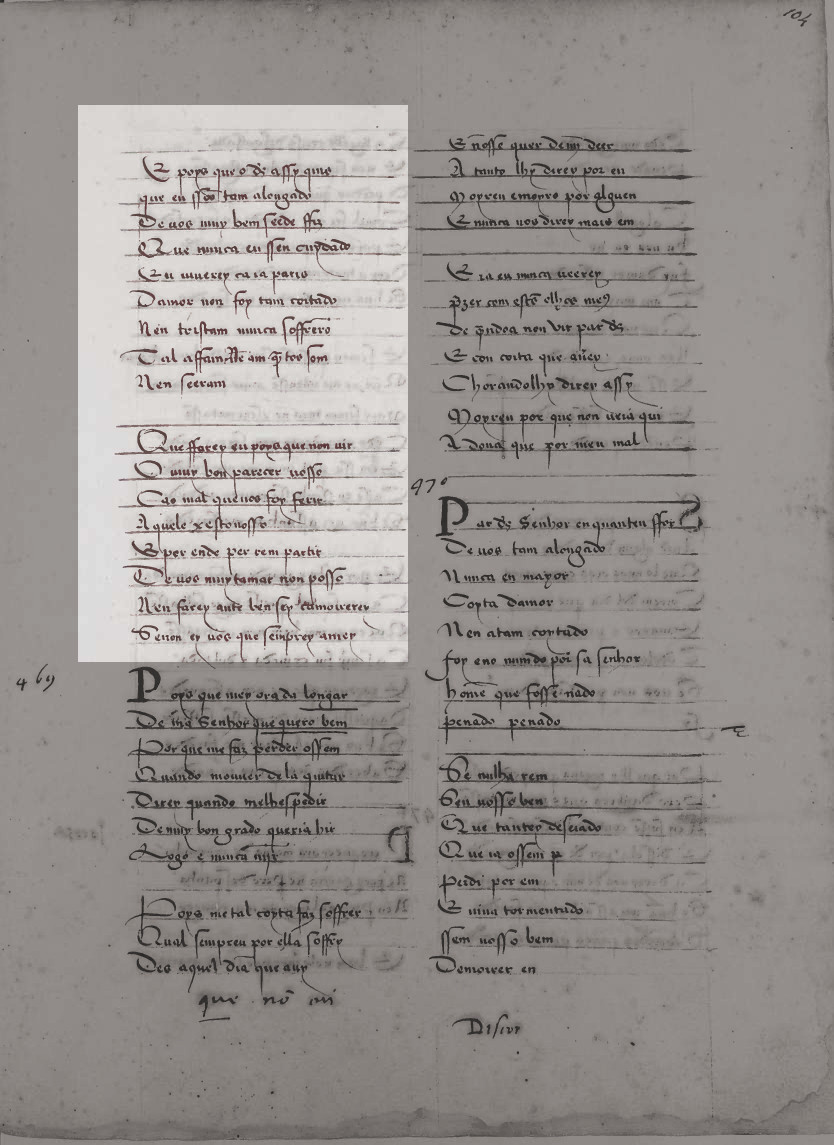 104
E poys que o ds̃ assy quis
que eu ssõo tam alongado
De uos muy bem seede ffiz
Que nunca eu ssen cuydado
Eu viuerey ca ia paris
Damor non foy tam coitado
Nen tristam nunca soffrerõ
Tal affam am quãtos som
Nen seeram
Que ffarey eu poys que non vir
O muy bon parecer uosso
Cao mal que uos foy ferir
Aquele x̃ esto uosso
E por ende per rem partir
De uos muytamar non posso
Nen farey ante ben sey ca moirerey
Senon ey uos que semprey amey
469
Poys que mey ora da longar
De mha Senhor que quero bem
Por que me faz perder o ssem
Quando mouuer dela quitar
Direy quando melhespedir
De muy bon grado queria hir
Logo e nunca uijr
Poys me tal coyta faz soffrer
Qual sempreu por ella soffry
Des aquel dia que a uy
que nõ ui
E nõsse quer de mj̃ doer
A tanto lhy direy por en
Moyreu e moyro por alguen
E nunca uos direy mais em
E ia eu nunca ueerey
Pzer com estes olhos me9
De quãdoa non uir par ds̃
E con coita que auerey
Chorandolhy direy assy
Moyreu por que non ueia qui
A dona que por meu mal
470
Par ds̃ Senhor en quanteu ffor
De uos tam alongado
Nunca en mayor
Coyta damor
Nen atam coytado
foy eno mundo por sa senhor
home que fosse nado
penado penado
Se nulha rem
Sen uosso ben
Que tantey deseiado
Que ia o ssem p
Perdi por em
E uiuo tormentado
ssem uosso bem
De moirer en
Discor